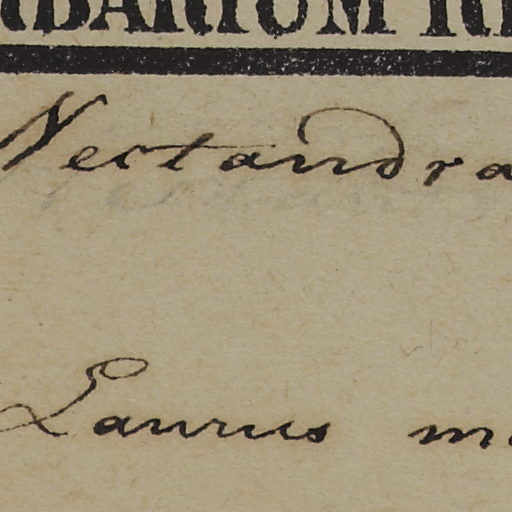 RBARIUM RE
Nectandra
Laurus m